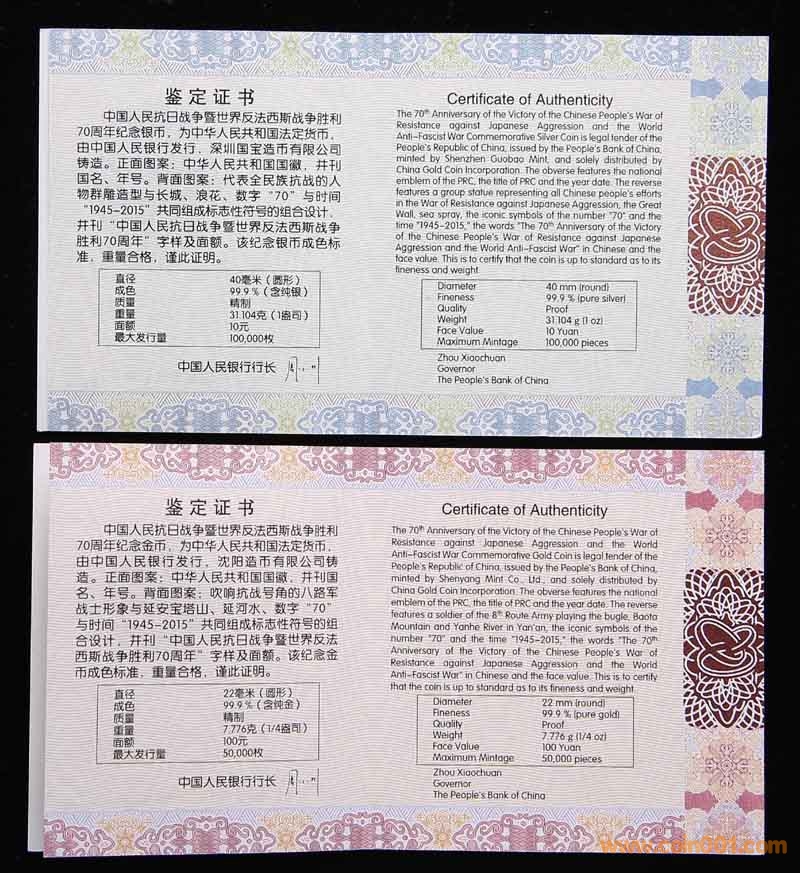 鉴定证书
中国人民抗日战争暨世界反法西斯战争胜利
70周年纪念银币，为中华人民共和国法定货币，
由中国人民银行发行，深圳国宝造币有限公司
铸造。正面图案：中华人民共和国国徽，并刊
国名、年号。背面图案：代表全民族抗战的人
物群雕造型与长城、浪花、数字“70”与时间
“1945-2015”共同组成标志性符号的组合设计，
并刊“中国人民抗日战争暨世界反法西斯战争
胜利70周年”字样及面额。该纪念银币成色标
准，重量合格，谨此证明。
直径 40毫米（圆形）
成色 99.9%（含纯银）
质量 精制
重量 31.104克（1盎司）
面额 10元
最大发行量 100,000枚
中国人民银行行长
Certificate of Authenticity
The 70th Anniversary of the Victory of the Chinese People's War of
Resistance against Japanese Aggression and the World
Anti-Fascist War Commemorative Silver Coin is legal tender of the
People's Republic of China, issued by the People's Bank of China,
minted by Shenzhen Guobao Mint, and solely distributed by
China Gold Coin Incorporation. The obverse features the national
emblem of the PRC, the title of PRC and the year date. The reverse
features a group statue representing all Chinese people's efforts
in the War of Resistance against Japanese Aggression, the Great
Wall, sea spray, the iconic symbols of the number "70" and the
time "1945-2015," the words "The 70th Anniversary of the Victory
of the Chinese People's War of Resistance against Japanese
Aggression and the World Anti-Fascist War" in Chinese and the
face value. This is to certify that the coin is up to standard as to its
fineness and weight.
Diameter 40 mm (round)
Fineness 99.9 % (pure silver)
Quality Proof
Weight 31.104 g (1 oz)
Face Value 10 Yuan
Maximum Mintage 100,000 pieces
Zhou Xiaochuan
Governor
The People's Bank of China
鉴定证书
中国人民抗日战争暨世界反法西斯战争胜利
70周年纪念金币，为中华人民共和国法定货币，
由中国人民银行发行，沈阳造币有限公司铸
造。正面图案：中华人民共和国国徽，并刊国
名、年号。背面图案：吹响抗战号角的八路军
战士形象与延安宝塔山、延河水、数字“70”
与时间“1945-2015”共同组成标志性符号的组
合设计，并刊“中国人民抗日战争暨世界反法
西斯战争胜利70周年”字样及面额。该纪念金
币成色标准，重量合格，谨此证明。
直径 22毫米（圆形）
成色 99.9%（含纯金）
质量 精制
重量 7.776克（1/4盎司）
面额 100元
最大发行量 50,000枚
中国人民银行行长
Certificate of Authenticity
The 70th Anniversary of the Victory of the Chinese People's War of
Resistance against Japanese Aggression and the World
Anti-Fascist War Commemorative Gold Coin is legal tender of the
People's Republic of China, issued by the People's Bank of China,
minted by Shenyang Mint Co., Ltd., and solely distributed by
China Gold Coin Incorporation. The obverse features the national
emblem of the PRC, the title of PRC and the year date. The reverse
features a soldier of the 8th Route Army playing the bugle, Baota
Mountain and Yanhe River in Yan'an, the iconic symbols of the
number "70" and the time "1945-2015," the words "The 70th
Anniversary of the Victory of the Chinese People's War of
Resistance against Japanese Aggression and the World
Anti-Fascist War" in Chinese and the face value. This is to certify
that the coin is up to standard as to its fineness and weight.
Diameter 22 mm (round)
Fineness 99.9 % (pure gold)
Quality Proof
Weight 7.776 g (1/4 oz)
Face Value 100 Yuan
Maximum Mintage 50,000 pieces
Zhou Xiaochuan
Governor
The People's Bank of China